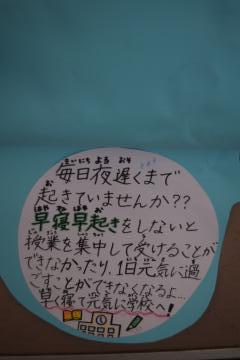 まいにち よる おそ
毎日夜遅くまで
お
起きていませんか??
はや ね はや お
早寝早起きをしないと
授業を集中して受けることが
できなかったり、1日元気に過
ごすことができなくなるよ…
早く寝て元気に学校へ!